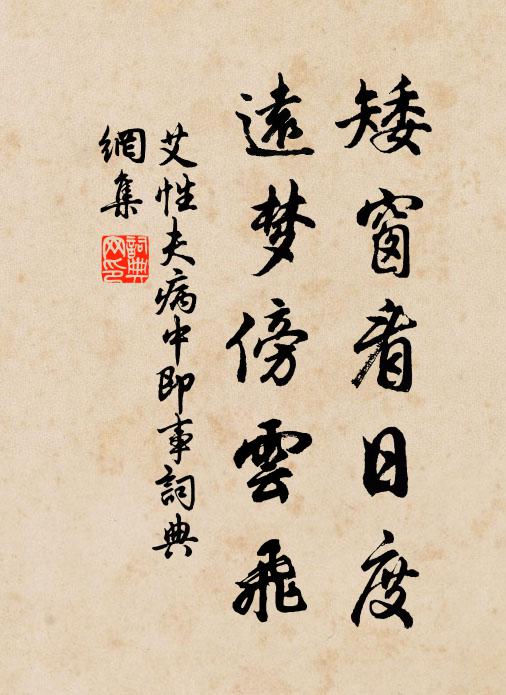 矮窗看日度
遠梦傍雲飛
艾性夫病中即事詞典
網集
詞典
网印